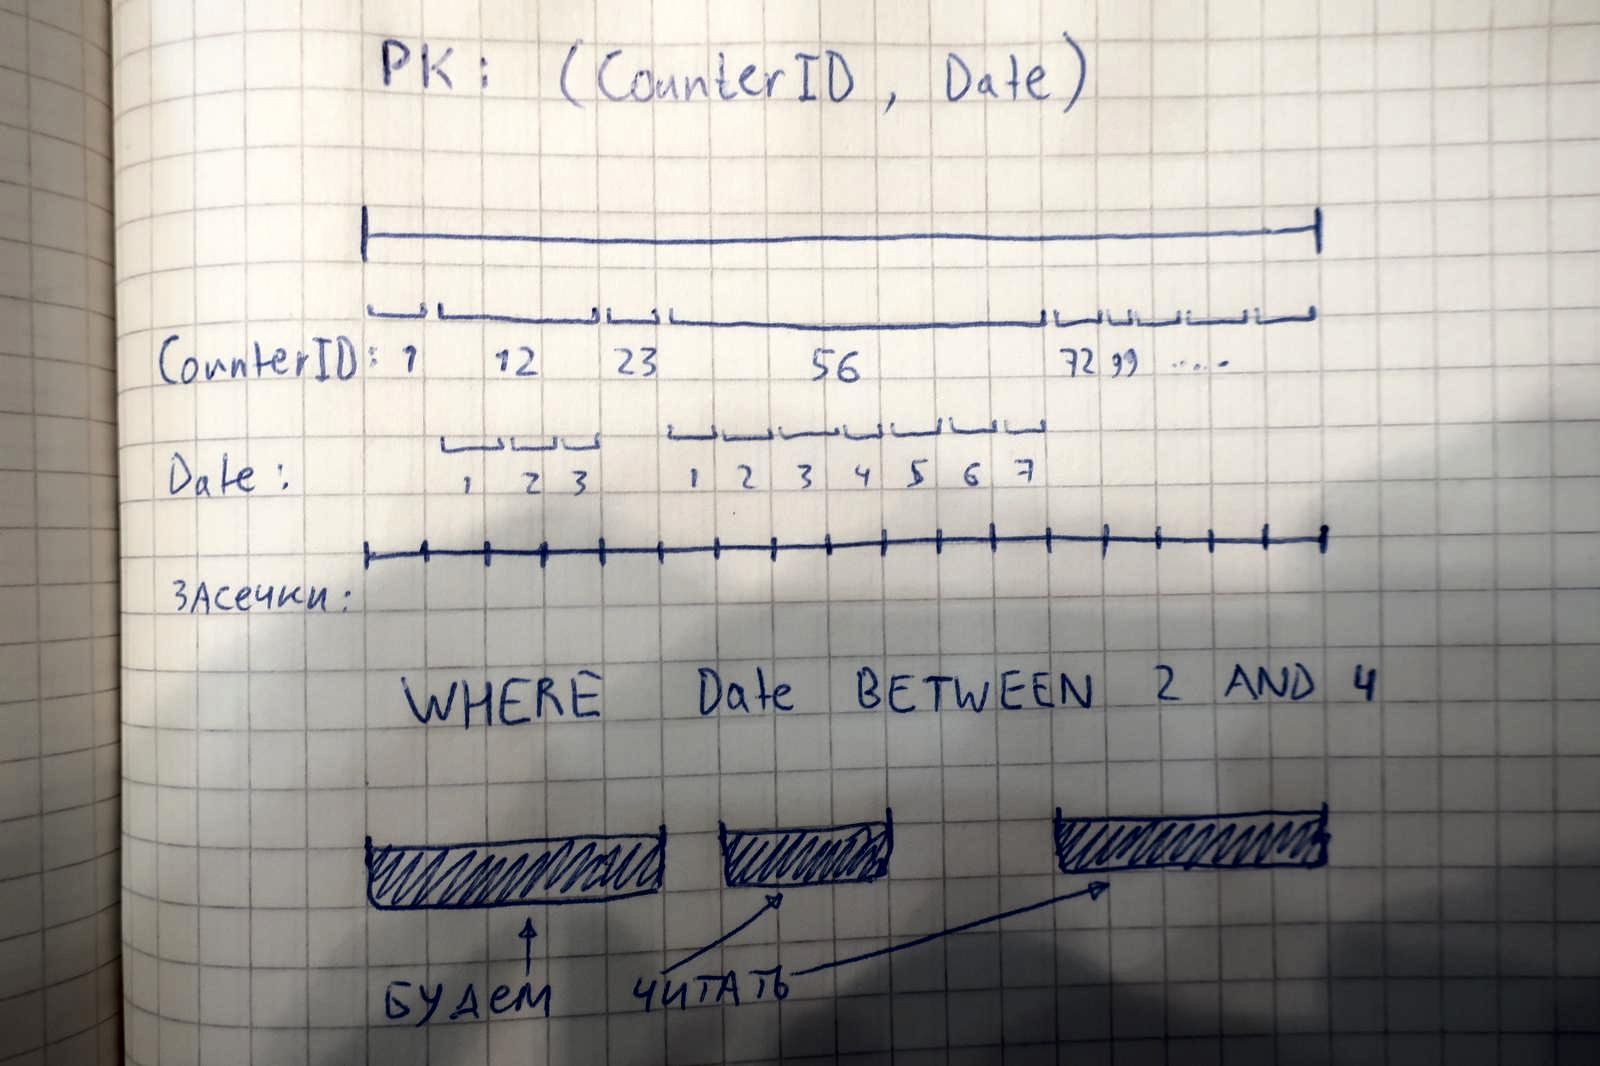 PK: (CounterID, Date)
CounterID: 1 12 23 56 72 99 .....
Date: 1 2 3 1 2 3 4 5 6 7
ЗАсечки:
WHERE Date BETWEEN 2 AND 4
БУДЕМ ЧИТАТЬ